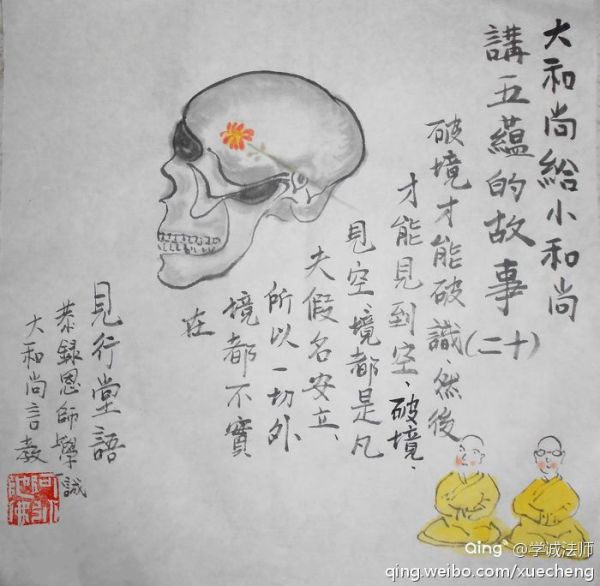 大和尚給小和尚
講五蘊的故事(二十)
破境才能破識、然後
才能見到空、破境、
見空、境都是凡
夫假名安立、
所以一切外
境都不實
在
見行堂語
恭錄恩師學誠
大和尚言教
阿弥陀佛
Qing @学诚法师
qing.weibo.com/xuecheng